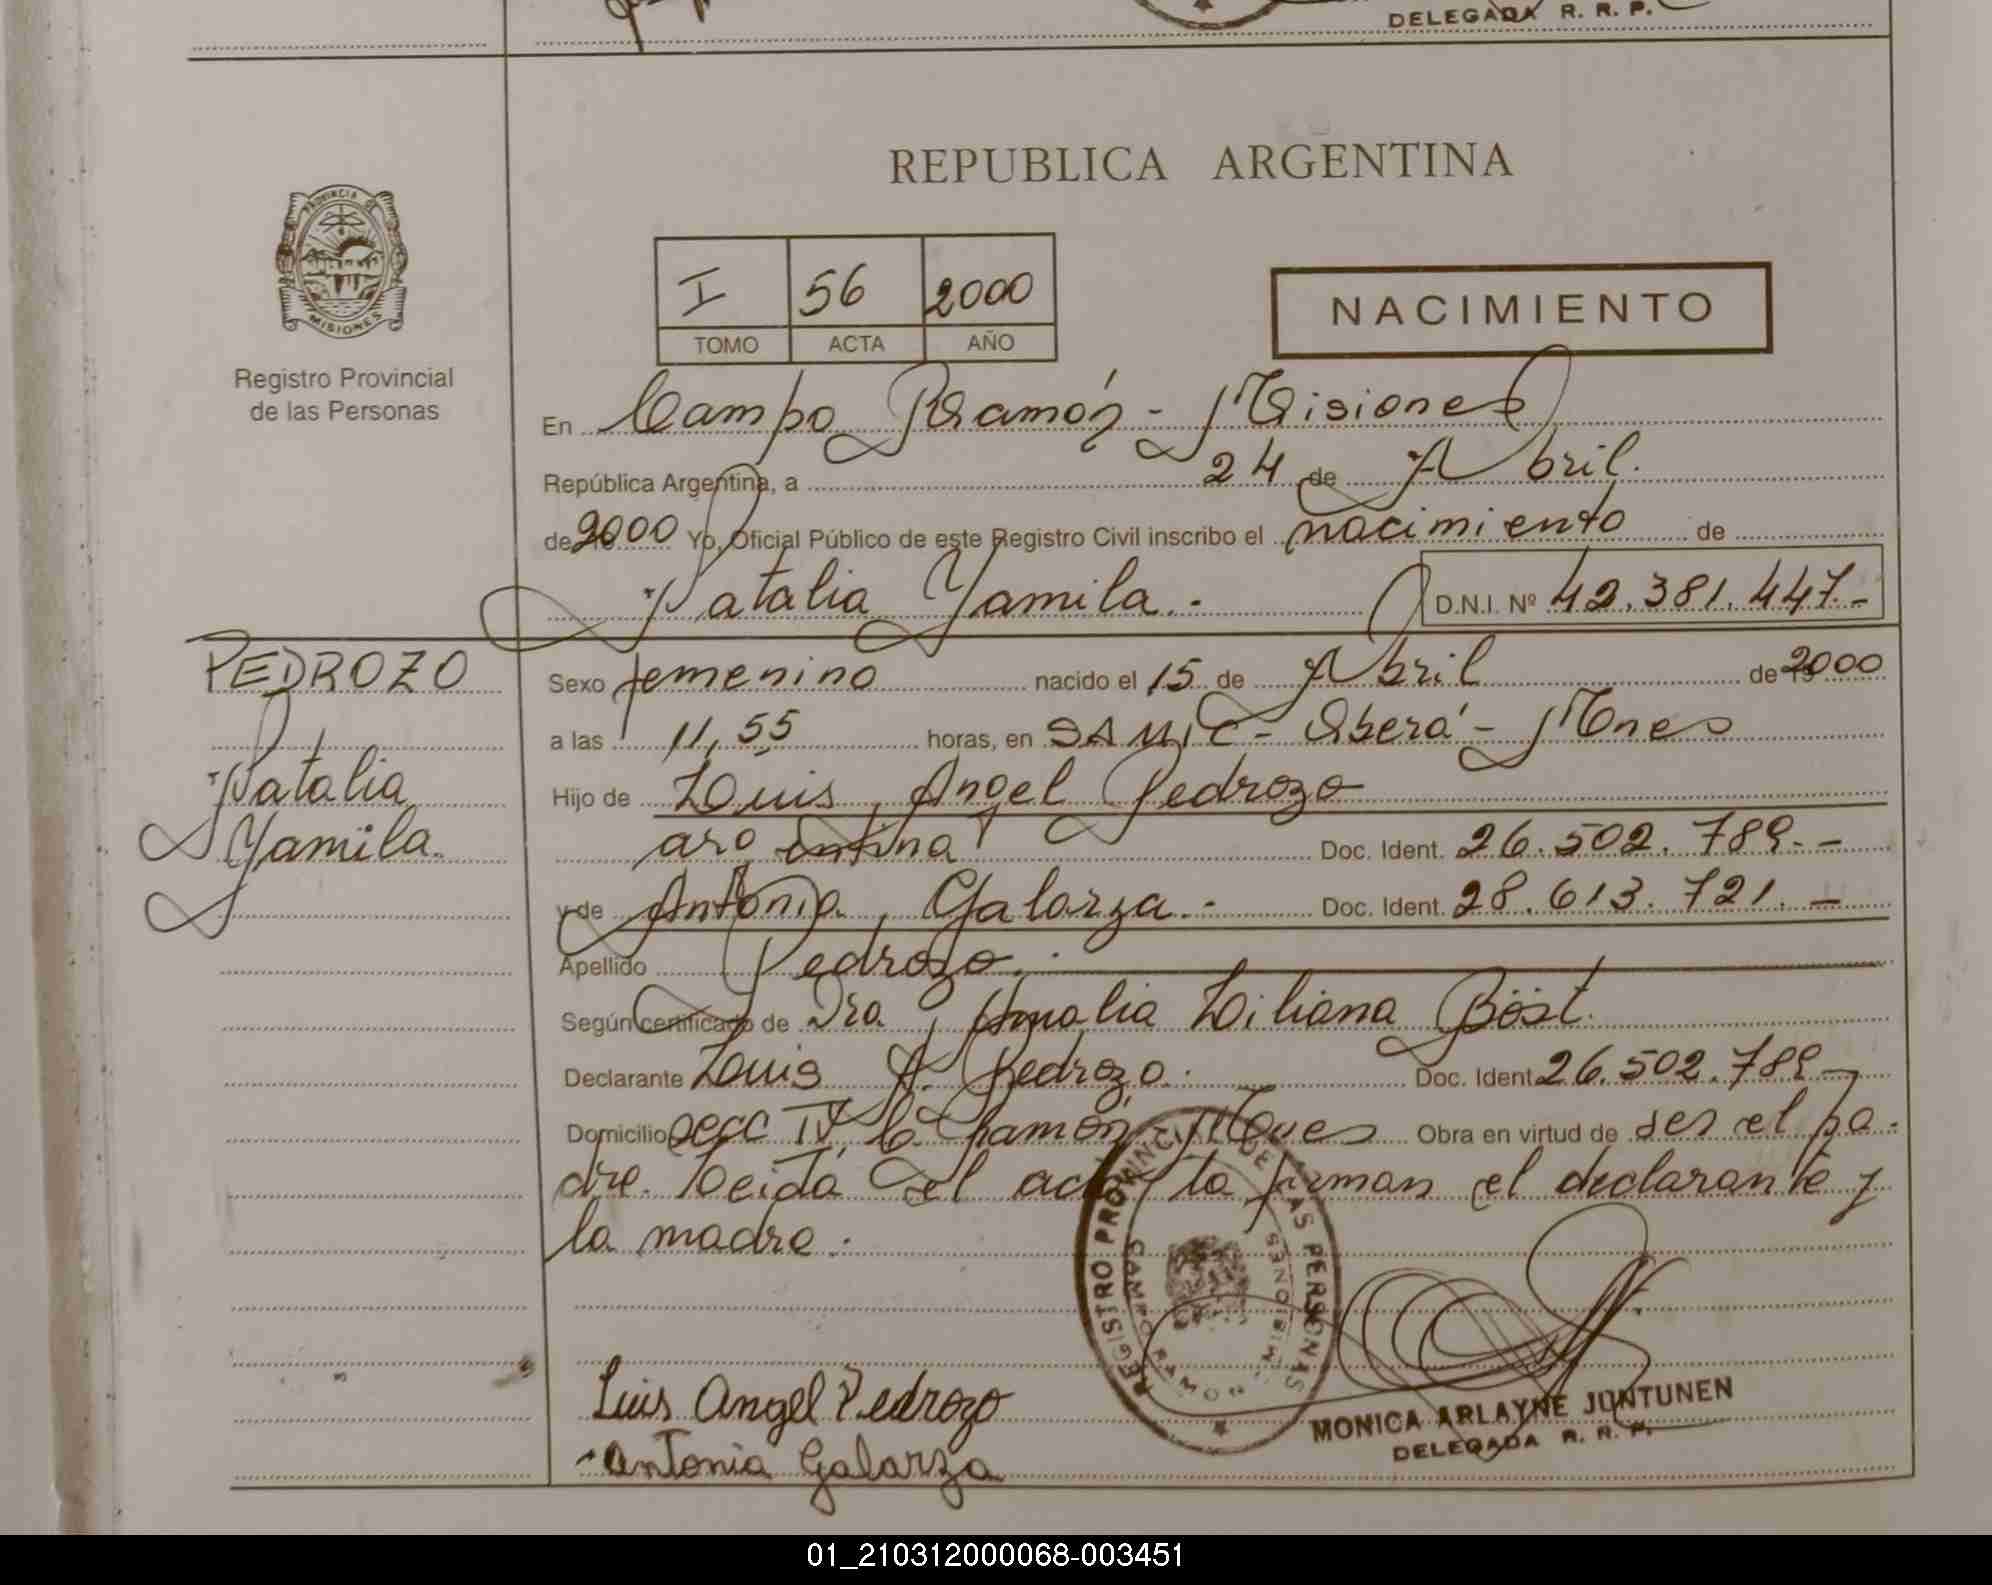 DELEGADA R. R. P.
REPUBLICA ARGENTINA
PROVINCIA DE
MISIONES
Registro Provincial
de las Personas
I 56 2000
TOMO ACTA AÑO
NACIMIENTO
En Campo Ramón - Misiones
República Argentina, a 24 de Abril.
de 2000 Yo, Oficial Público de este Registro Civil inscribo el nacimiento de
Natalia Yamila.- D.N.I. Nº 42.381.447.-
PEDROZO
Natalia
Yamila.
Sexo femenino nacido el 15 de Abril de 2000
a las 11,55 horas, en SAMIC - Oberá - Mnes
Hijo de Luis Angel Pedrozo
argentina Doc. Ident. 26.502.789.-
y de Antonia Galarza.- Doc. Ident. 28.613.721.-
Apellido Pedrozo.
Según certificado de Dra Amalia Liliana Böst.
Declarante Luis A. Pedrozo. Doc. Ident. 26.502.789-
Domicilio secc IV, C. Ramón, Mnes Obra en virtud de ser el pa-
dre. Leida el acta la firman el declarante y
la madre.
REGISTRO PROVINCIAL DE LAS PERSONAS
CAMPO RAMON MISIONES
Luis Angel Pedrozo
Antonia Galarza
MONICA ARLAYNE JUNTUNEN
DELEGADA R. R. P.
01_210312000068-003451